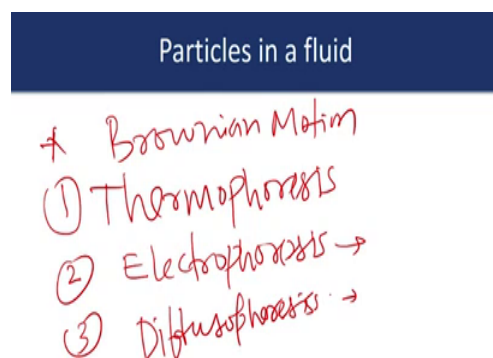 Particles in a fluid
* Brownian Motion
① Thermophoresis
② Electrophoresis →
③ Diffusophoresis →